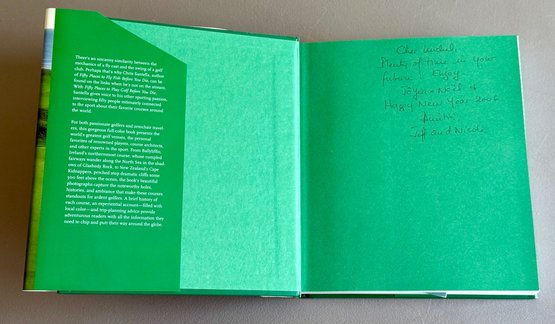 There's an uncanny similarity between the
mechanics of a fly-cast and the swing of a golf
club. Perhaps that's why Chris Santella, author
of Fifty Places to Fly Fish Before You Die, can be
found on the links when he's not on the stream.
With Fifty Places to Play Golf Before You Die,
Santella gives voice to his other sporting passion,
interviewing fifty people intimately connected
to the sport about their favorite courses around
the world.
For both passionate golfers and armchair travel-
ers, this gorgeous full-color book presents the
world's greatest golf venues, the personal
favorites of renowned players, course architects,
and other experts in the sport. From Ballyliffin,
Ireland's northernmost course, whose rumpled
fairways wander along the North Sea in the shad-
ows of Glashedy Rock, to New Zealand's Cape
Kidnappers, perched atop dramatic cliffs some
500 feet above the ocean, the book's beautiful
photographs capture the noteworthy holes,
histories, and ambiance that make these courses
standouts for ardent golfers. A brief history of
each course, an experiential account—filled with
local color—and trip-planning advice provide
adventurous readers with all the information they
need to chip and putt their way around the globe.
Cher Michel,
Plenty of time in your
future! Enjoy
Joyeux Noël &
Happy New Year 2006
Jeff and Nicole